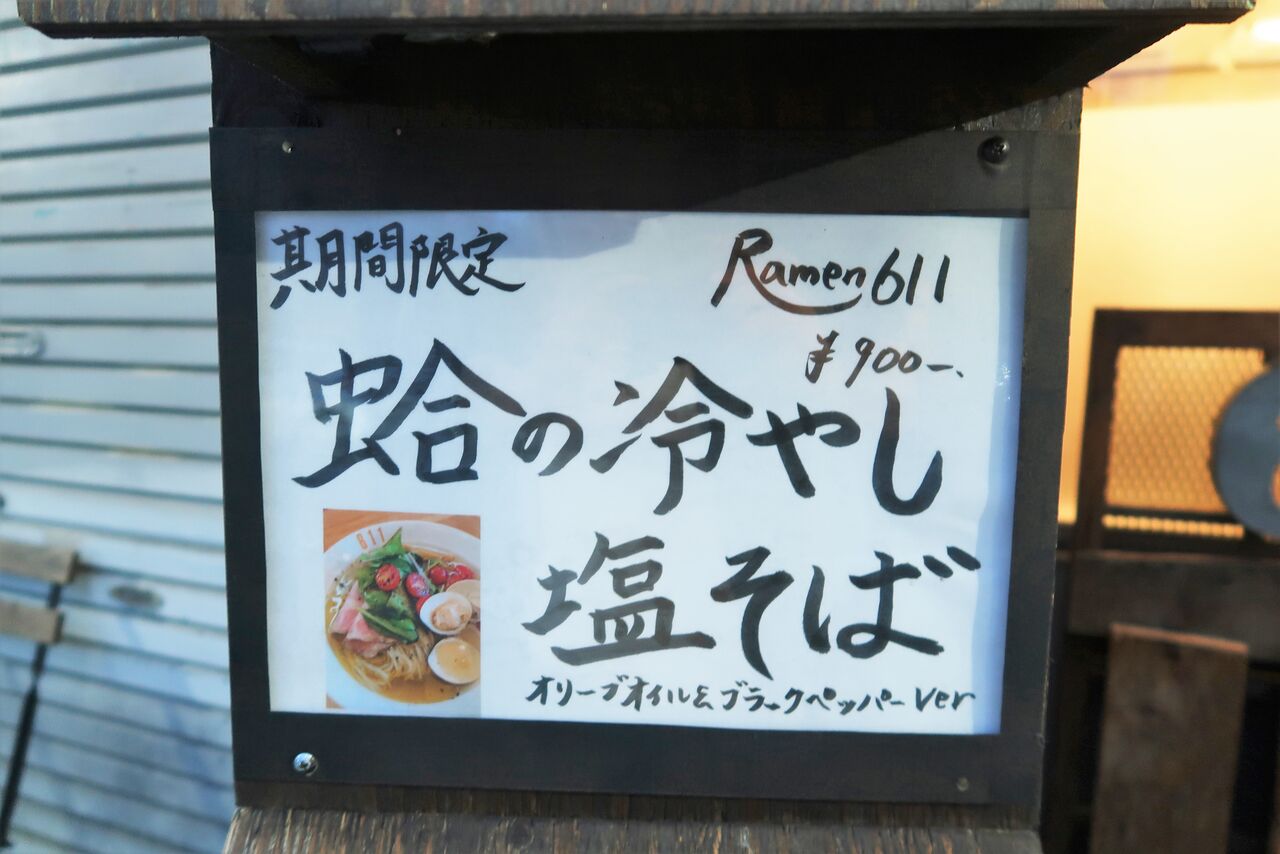 期間限定
Ramen611
¥900-.
蛤の冷やし
塩そば
オリーブオイル&ブラックペッパーver
611